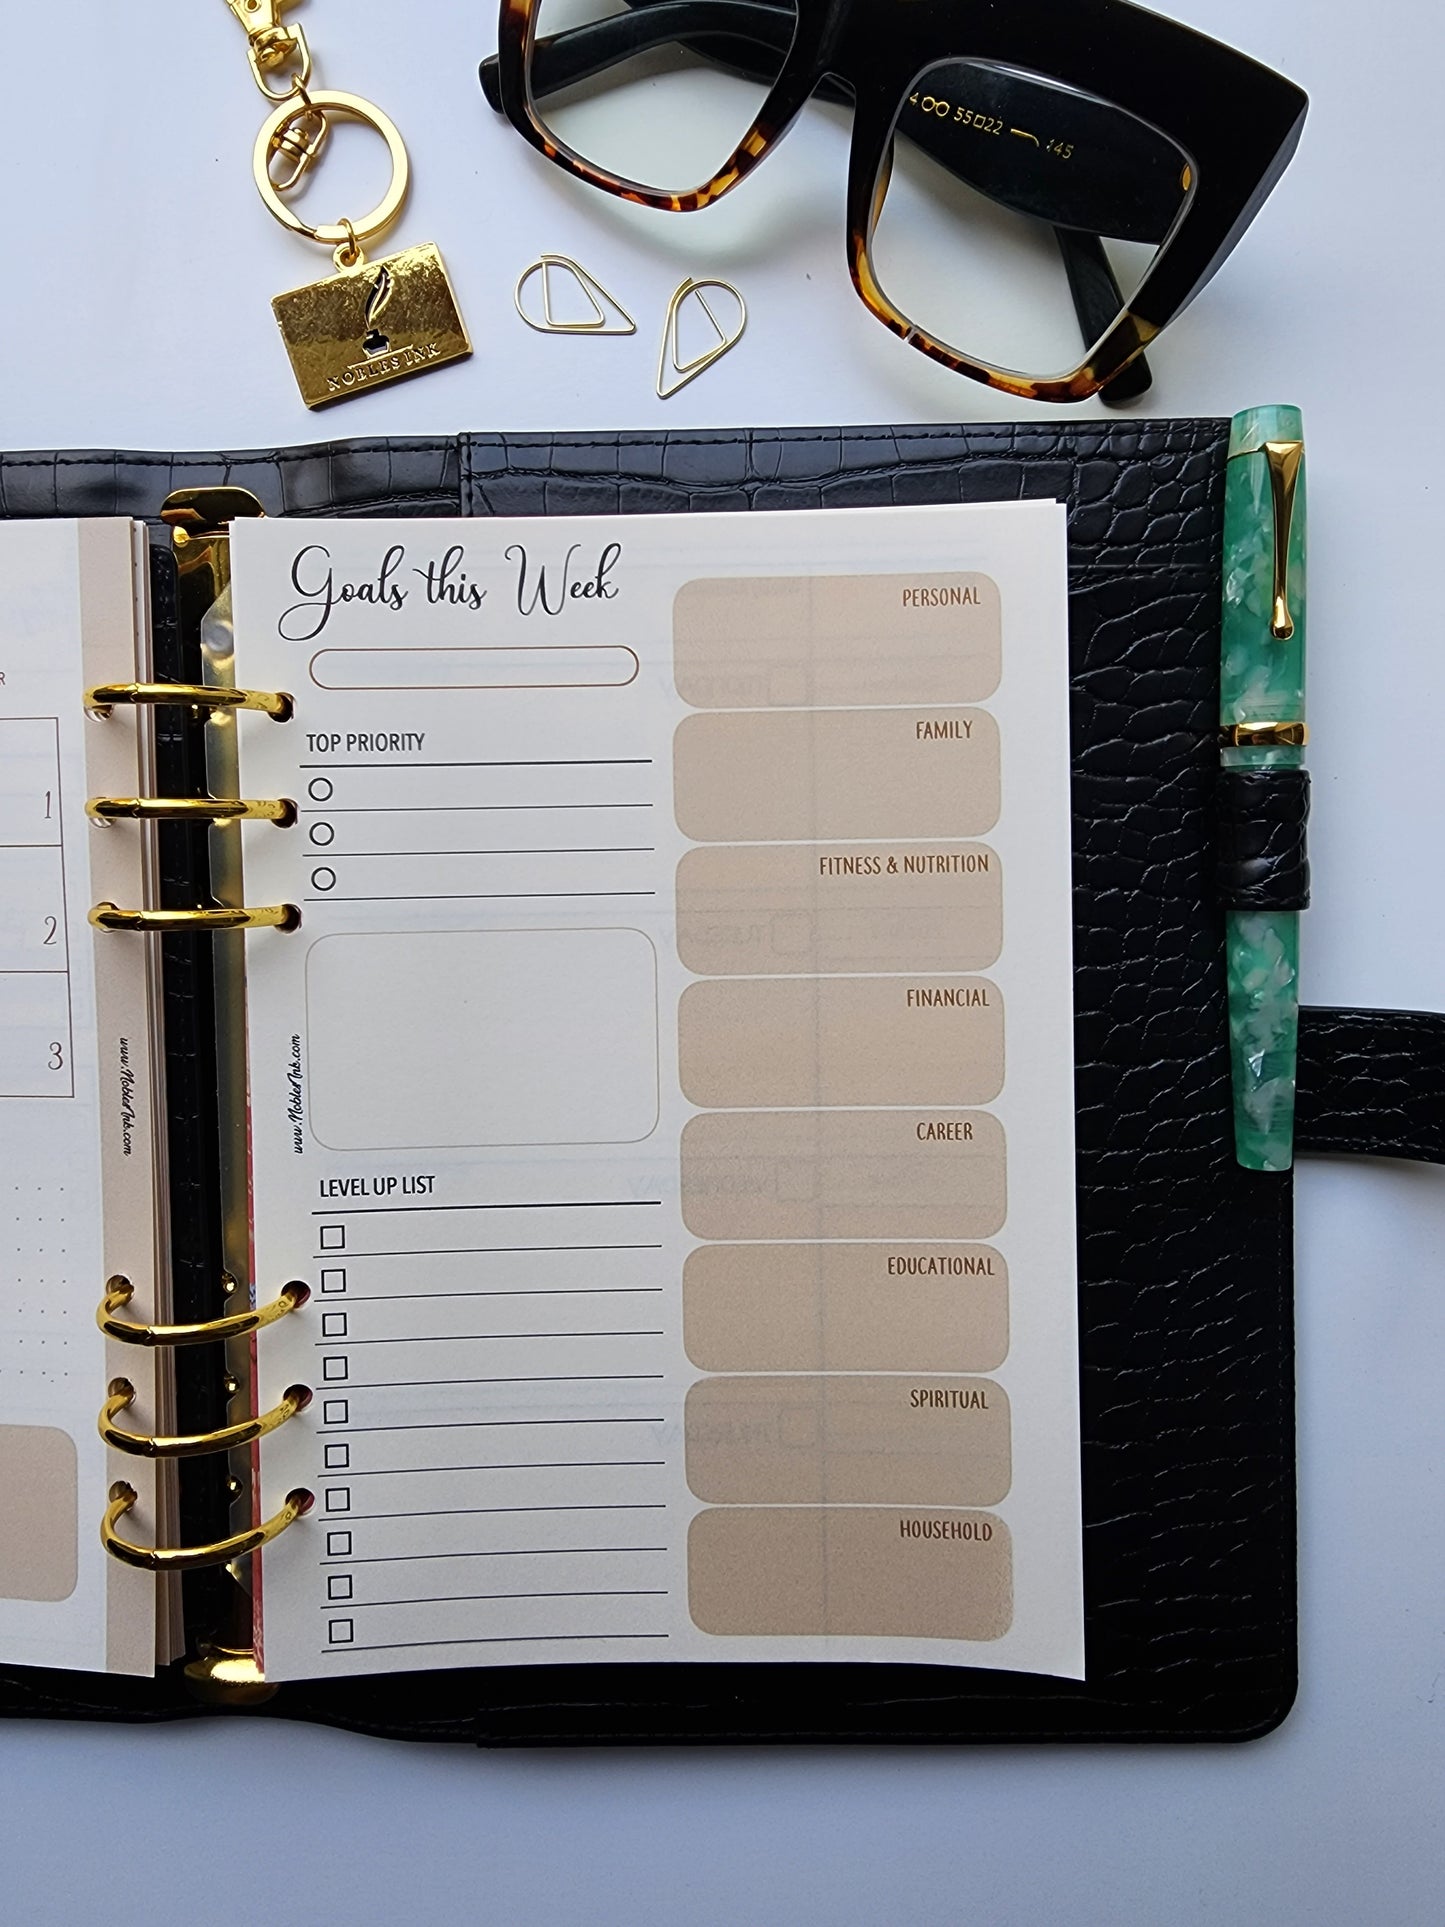 4 55□22 145
NOBLES INK
R
1
2
3
www.NoblesInk.com
Goals this Week
TOP PRIORITY
www.NoblesInk.com
LEVEL UP LIST
PERSONAL
FAMILY
FITNESS & NUTRITION
FINANCIAL
CAREER
EDUCATIONAL
SPIRITUAL
HOUSEHOLD